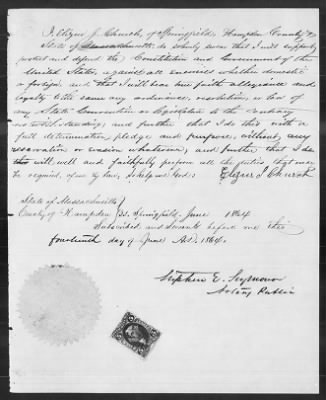 I, Elizur J. Church, of Springfield, Hampden County &
State of Massachusetts do solemnly swear that I will support,
protect and defend the Constitution and Government of the
United States, against all enemies whether domestic
or foreign, and that I will bear true faith allegiance and
loyalty to the same any ordinance, resolution, or law of
any State Convention or Legislature to the contrary
notwithstanding; and further that I do this with a
full determination pledge and purpose, without any
reservation or evasion whatsoever; and further that I
will well and faithfully perform all the duties that may
be required of me by law, so help me God:
Elizur J Church
State of Massachusetts }
County of Hampden } SS. Springfield June 1864
Subscribed and sworn to before me this
fourteenth day of June A.D. 1864.
Stephen E. Seymour
Notary Public